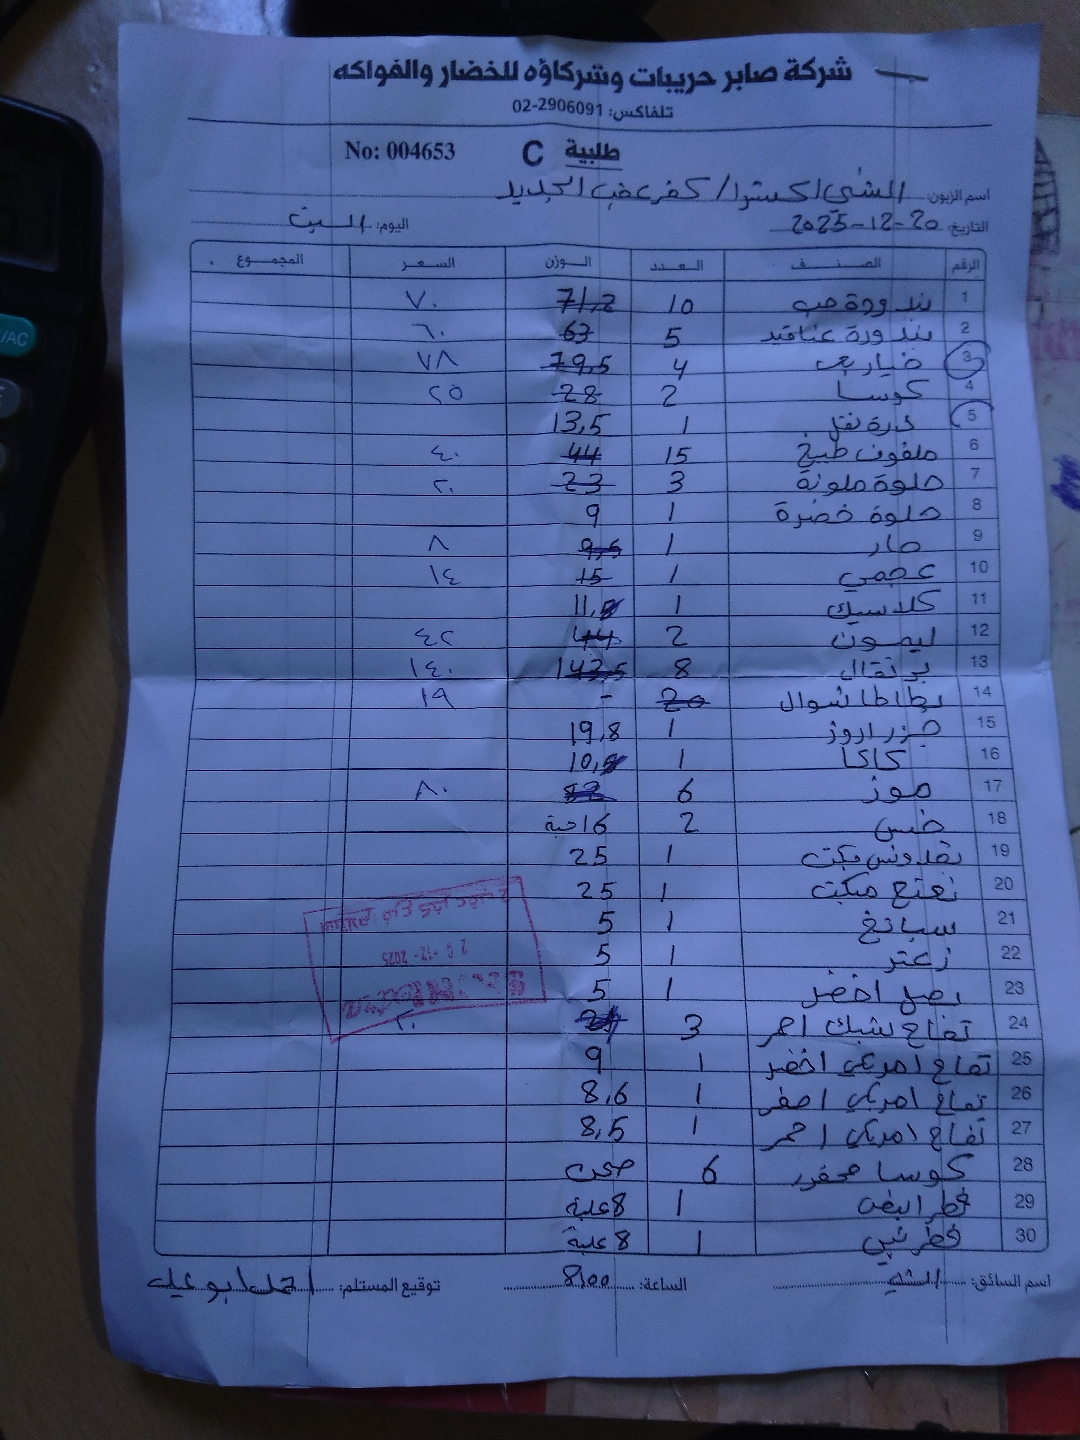 شركة صابر حريبات وشركاؤه للخضار والفواكه
تلفاكس: 02-2906091
طلبية C No: 004653
اسم الزبون: الشني اكسترا / كفر عقب الجديد
التاريخ: 2025-12-20 اليوم: السبت
الرقم الصنف العدد الوزن السعر المجموع
1 بندورة حب 10 71,2 ٧٠
2 بندورة عناقيد 5 63 ٦٠
3 خيار 4 79,5 ٧٨
4 كوسا 2 28 ٢٥
5 1 13,5
6 ملفوف طبيخ 15 44 ٤٠
7 حلوة ملونة 3 23 ٢٠
8 حلوة خضرة 1 9
9 حار 1 9,5 ٨
10 عجمي 1 15 ١٤
11 كلاسيك 1 11,5
12 ليمون 2 44 ٤٢
13 برتقال 8 142,5 ١٤٠
14 بطاطا شوال 20 - ١٩
15 جزر اروز 1 19,8
16 كاكا 1 10,5
17 موز 6 82 ٨٠
18 خس 2 16 حبة
19 بقدونس مكبت 1 25
20 نعنع مكبت 1 25
21 سبانخ 1 5
22 زعتر 1 5
23 بصل اخضر 1 5
24 تفاح شبك احمر 3 21 ٢٠
25 تفاح امريكي اخضر 1 9
26 تفاح امريكي اصفر 1 8,6
27 تفاح امريكي احمر 1 8,5
28 كوسا محفور 6 صحن
29 فطر 1 8 علبة
30 فطر بني 1 8 علبة
اسم السائق: الساعة: 8:00 توقيع المستلم: احمد ابو عيد